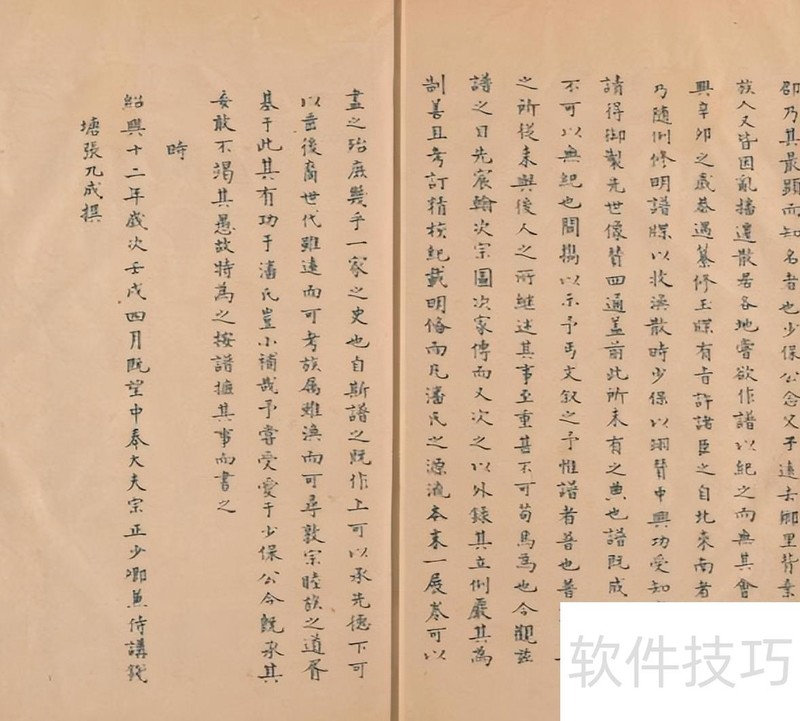 卲乃其最顯而知名者也少保公念父子遠去鄉里背棄
族人又皆因亂播遷散居各地嘗欲作譜以紀之而無其會
興辛卯之歲恭遇纂修玉牒有旨許諸臣之自北來南者
乃隨例修明譜牒以收渙散時少保以翊贊中興功受知
請得御製先世像贊四通蓋前此所未有之典也譜既成
不可以無紀也間携以示予丐文叙之予惟譜者普也普
之所從來與後人之所継述其事至重甚不可苟焉為也今觀茲
譜之目先宸翰次宗圖次家傳而又次之以外錄其立例嚴其為
制善且考訂精核紀載明偹而凡潘氏之源流本末一展卷可以
盡之殆庶幾乎一家之史也自斯譜之既作上可以承先德下可
以垂後裔世代雖遠而可考族属雖渙而可尋敦宗睦族之道胥
基于此其有功于潘氏豈小補哉予嘗受愛于少保公今既承其
委敢不竭其愚故特為之按譜摭其事而書之
時
紹興十二年歲次壬戌四月既望中奉大夫宗正少卿兼侍講錢
塘張九成撰
软件技巧